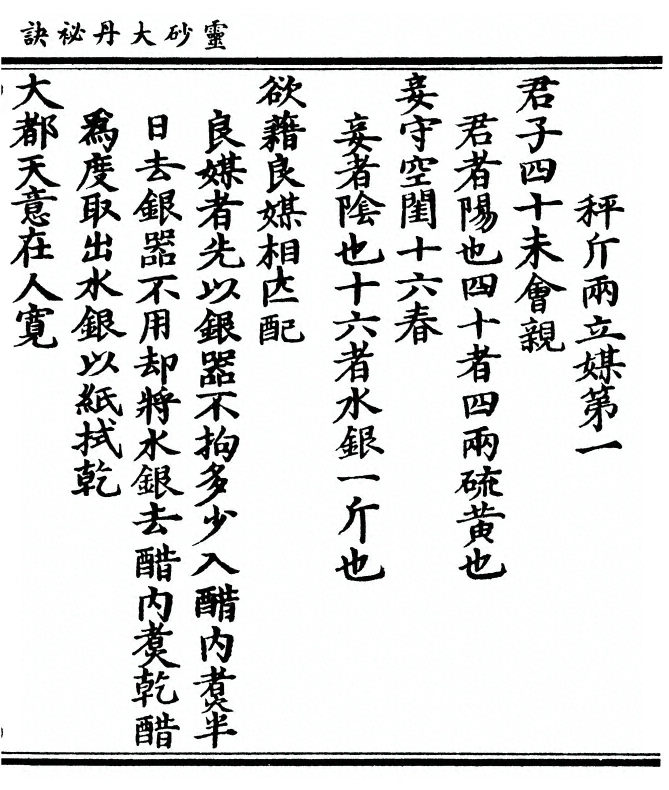 靈砂大丹祕訣
秤斤兩立媒第一
君子四十未會親
君者陽也四十者四兩硫黄也
妾守空閨十六春
妾者隂也十六者水銀一斤也
欲藉良媒相匹配
良媒者先以銀器不拘多少入醋内煑半
日去銀器不用却將水銀去醋内煑乾醋
爲度取出水銀以紙拭乾
大都天意在人寛